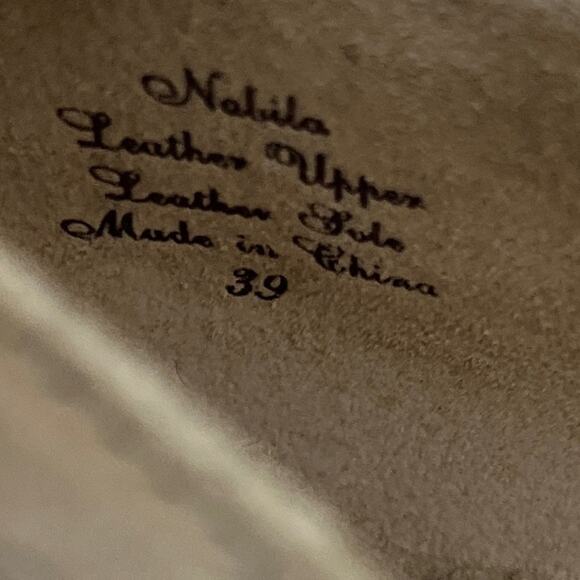 Nabila
Leather Upper
Leather Sole
Made in China
39